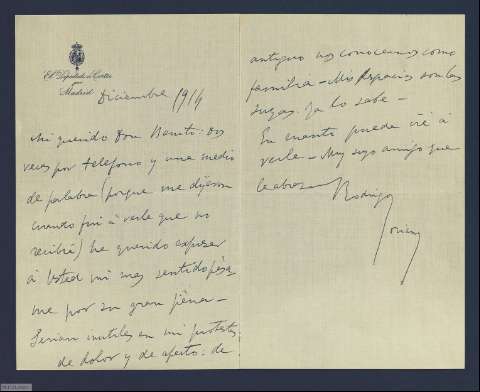 El Diputado á Cortes
Madrid
Diciembre 1914
Mi querido Don Benito: Dos
veces por telefono y una media
de palabra (porque me dijeron
cuanto fui á verle que no
recibía) he querido expresar
á Usted mi mas sentido pésa
me por su gran pena—
Serian inutiles en mi protestas
de dolor y de afecto: de
antiguo nos conocemos como
familia— Mis
son las
suyas. ya lo sabe—
En cuanto pueda iré á
verle— Muy suyo amigo que
le abraza
Rodrigo